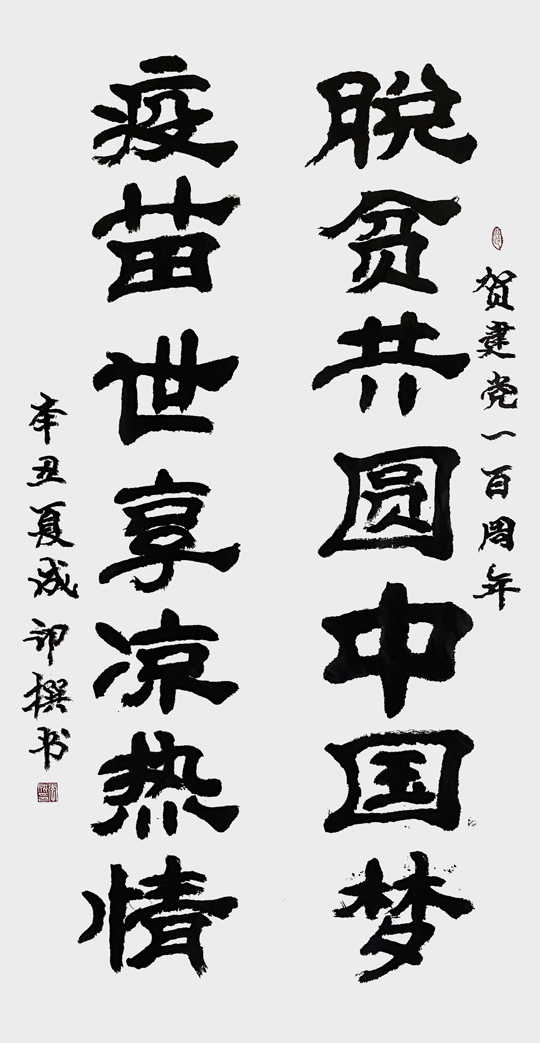 贺建党一百周年
脱贫共圆中国梦
疫苗世享凉热情
辛丑夏成印撰书